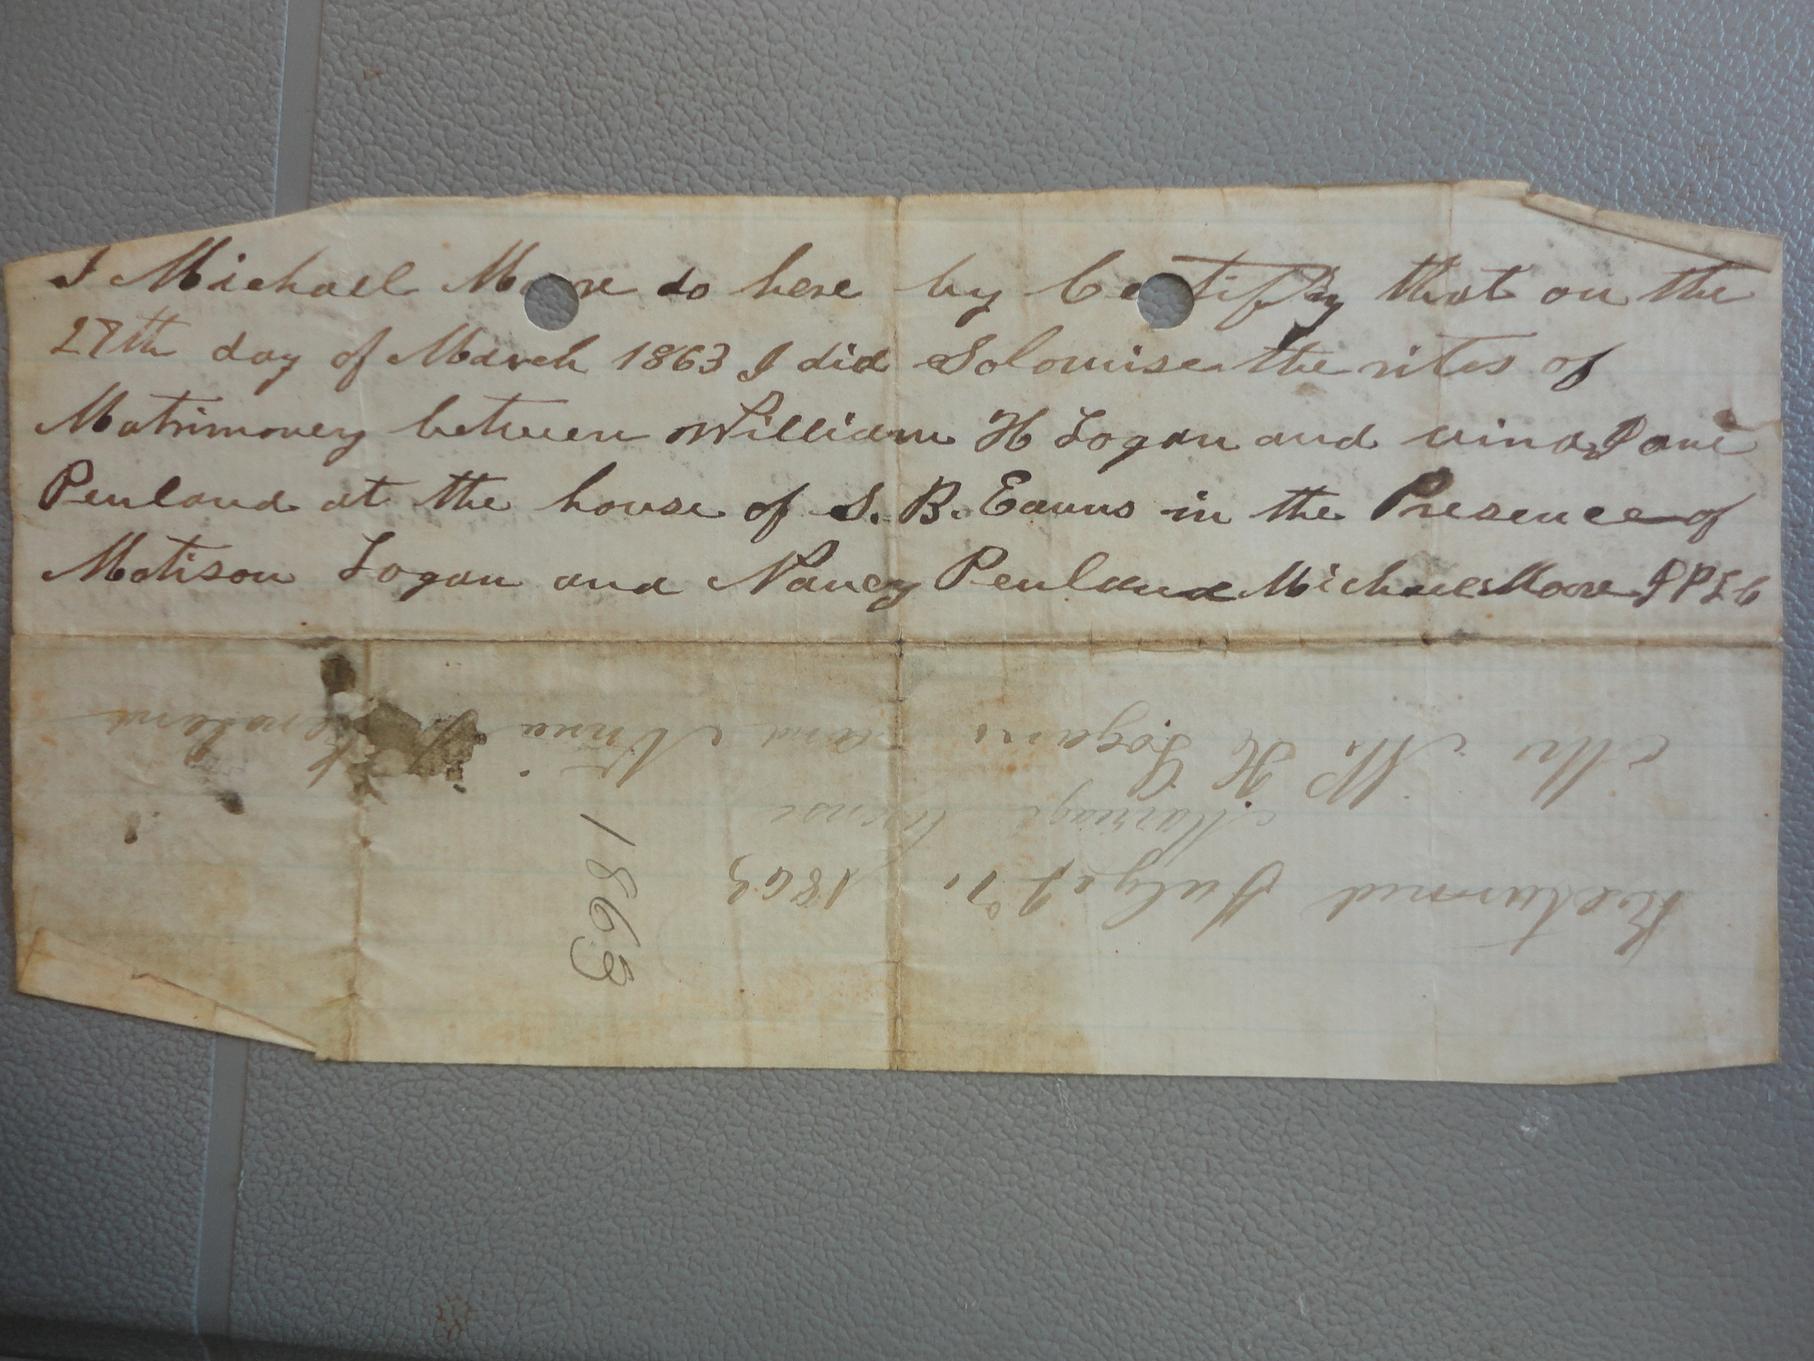 I Michael Moore do here by Certify that on the
27th day of March 1863 I did Solomise the rites of
Matrimoney between William H Logan and vina Jane
Penland at the house of S. B. Eauns in the Presence of
Matison Logan and Nancy Penland Michael Moore J P L C
Mr W. H Logan and Vina J Penland
Marriage license
Returned July 1863
1863